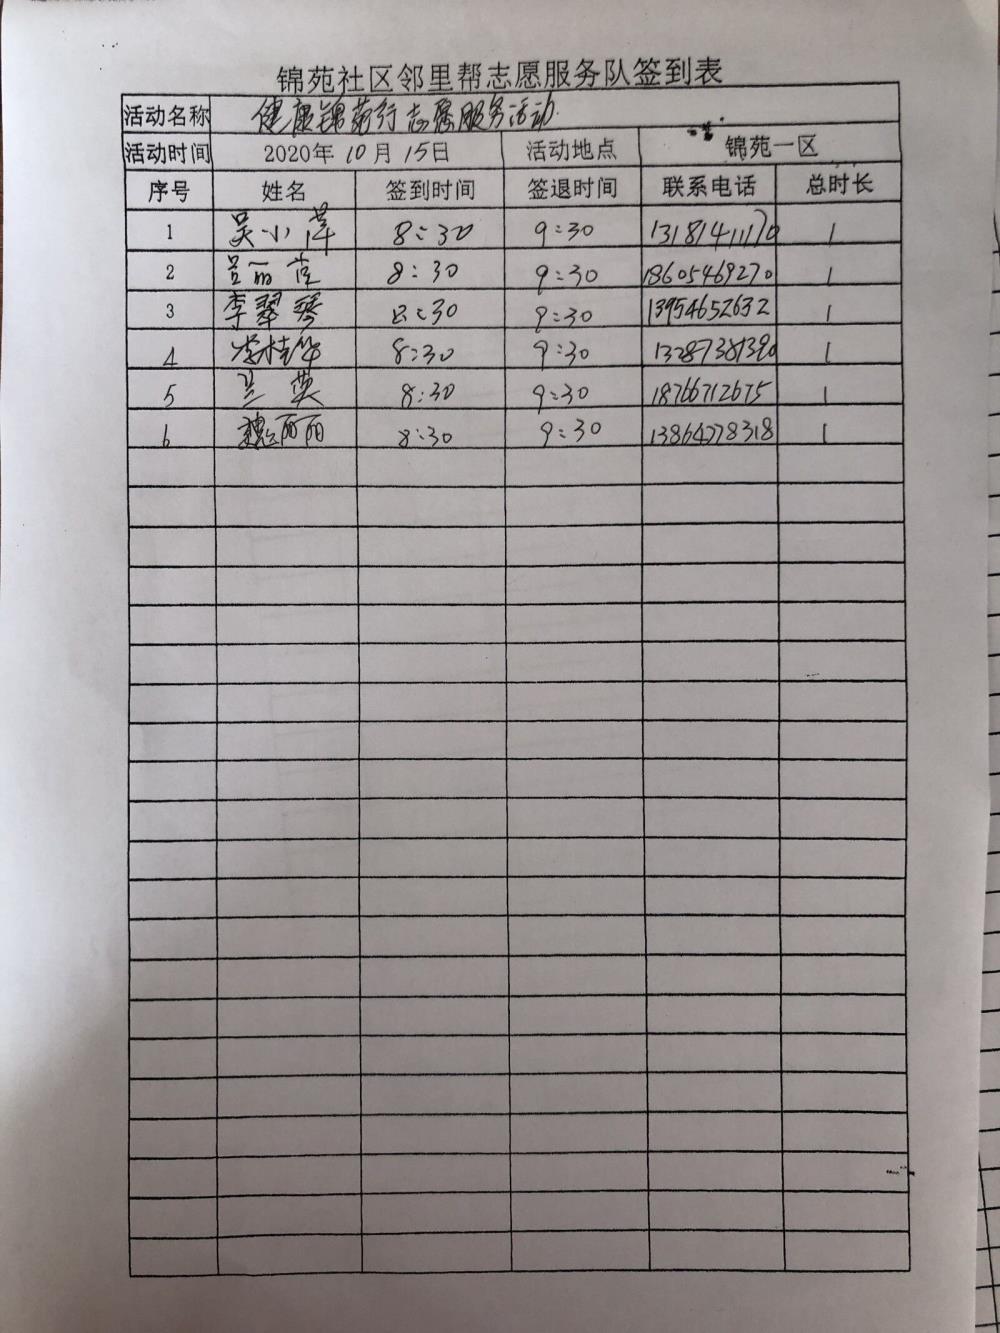 锦苑社区邻里帮志愿服务队签到表
活动名称 健康锦苑行志愿服务活动
活动时间 2020年10月15日 活动地点 锦苑一区
序号 姓名 签到时间 签退时间 联系电话 总时长
1 吴小萍 8:30 9:30 13181411170 1
2 吕丽萱 8:30 9:30 18605469270 1
3 李翠琴 8:30 9:30 13954652632 1
4 桂华 8:30 9:30 13287381390 1
5 兰英 8:30 9:30 18766712675 1
6 魏丽丽 8:30 9:30 13864778318 1